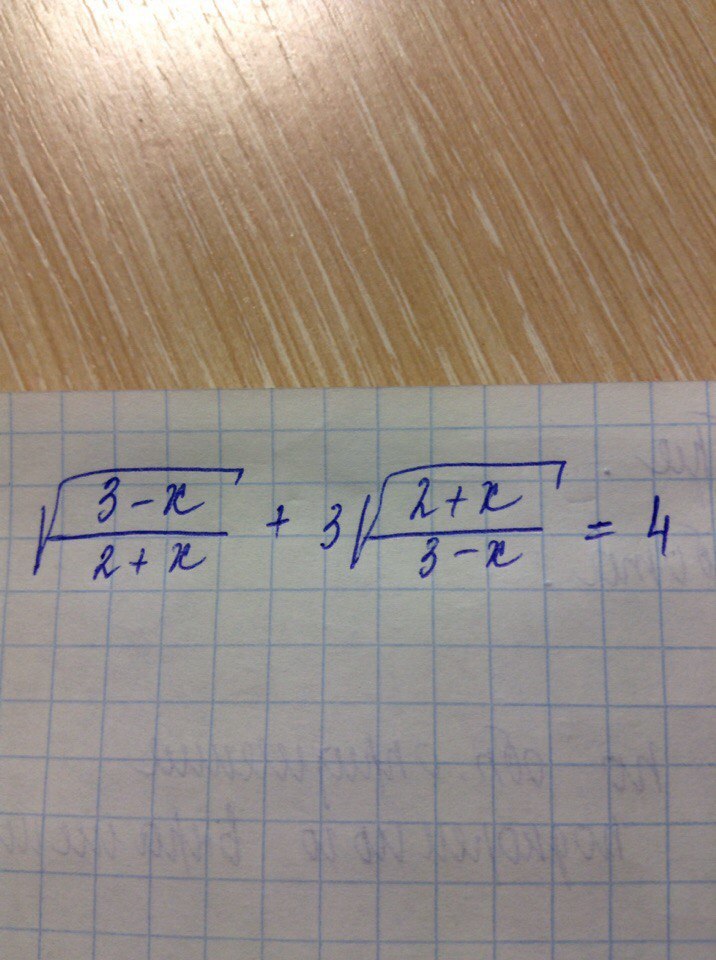 √((3-x)/(2+x)) + 3√((2+x)/(3-x)) = 4